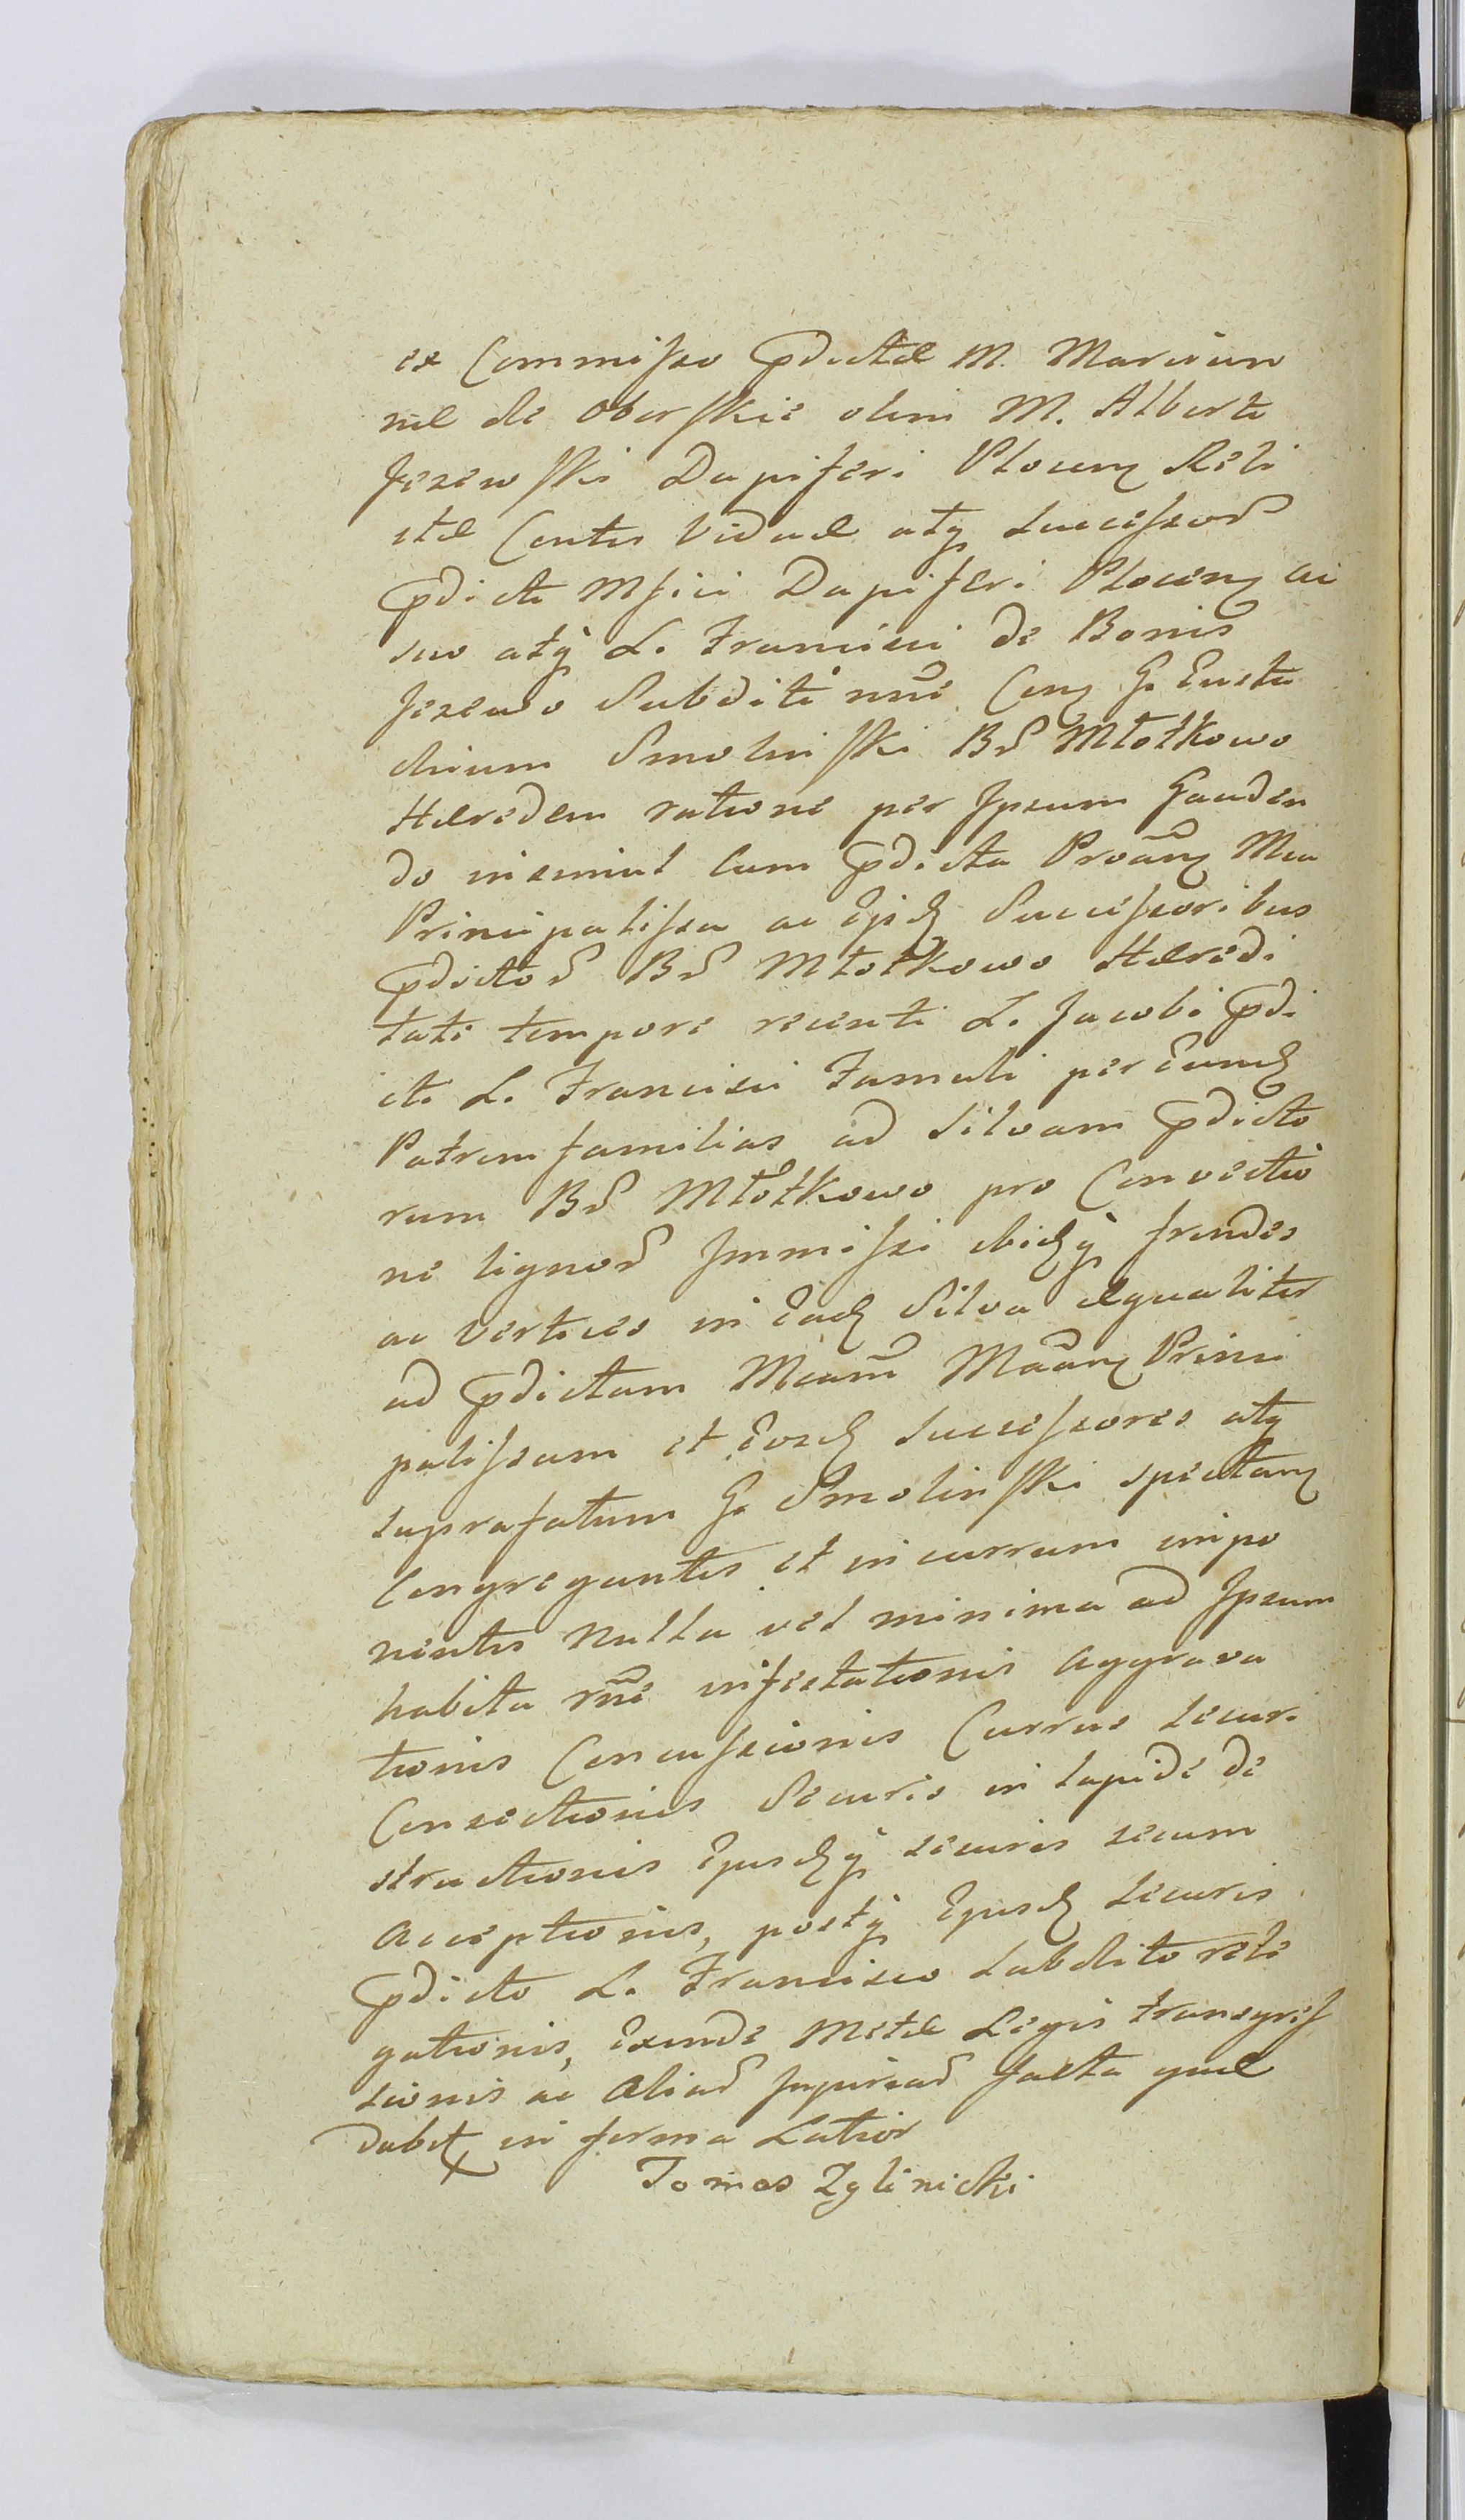 ex Commisso pdictæ M. Marian
næ de Oborskie olim M. Alberti
Jezewski Dapiferi Plocen Reli
ctæ Contis Viduæ atq successor
pdicti Mfici Dapiferi Plocen ac
suo atq L. Francisci de Bonis
Jezewo Subditi nnē Con G. Eusta
chium Smolinski Br Młotkowo
Hæredem ratione per Ipsum Gauden
do insimul cum pdicta Proān Mea
Principalissa ac Ejsd Successoribus
pdictor Br Młotkowo Hæredi
tate tempore recenti L. Jacobi pdi
cti L. Francisci Famuli per Eund
Patrem familias ad silvam pdicto
rum Br Młotkowo pro Convectio
ne lignor Immissi ibidq frondes
ac vertices in Ead Silva æqualiter
ad pdictam Meam Maān Princi
palissam et Eosd successores atq
suprafatum G. Smolinski spectan
Congregantis et in currum impo
nentis nulla vel minima ad Ipsum
habita rnē infestationis aggrava
tionis Concussionis Currus securi
Consectionis Securis in lapide de
structionis Ejusdq securis secum
acceptionis, postq Ejusd securis
pdicto L. Francisco subdito rele
gationis, Exinde Metæ Legis transgres
sionis ac Aliar Injuriar facta quæ
dabit in forma Latior
Tomas Zglinicki